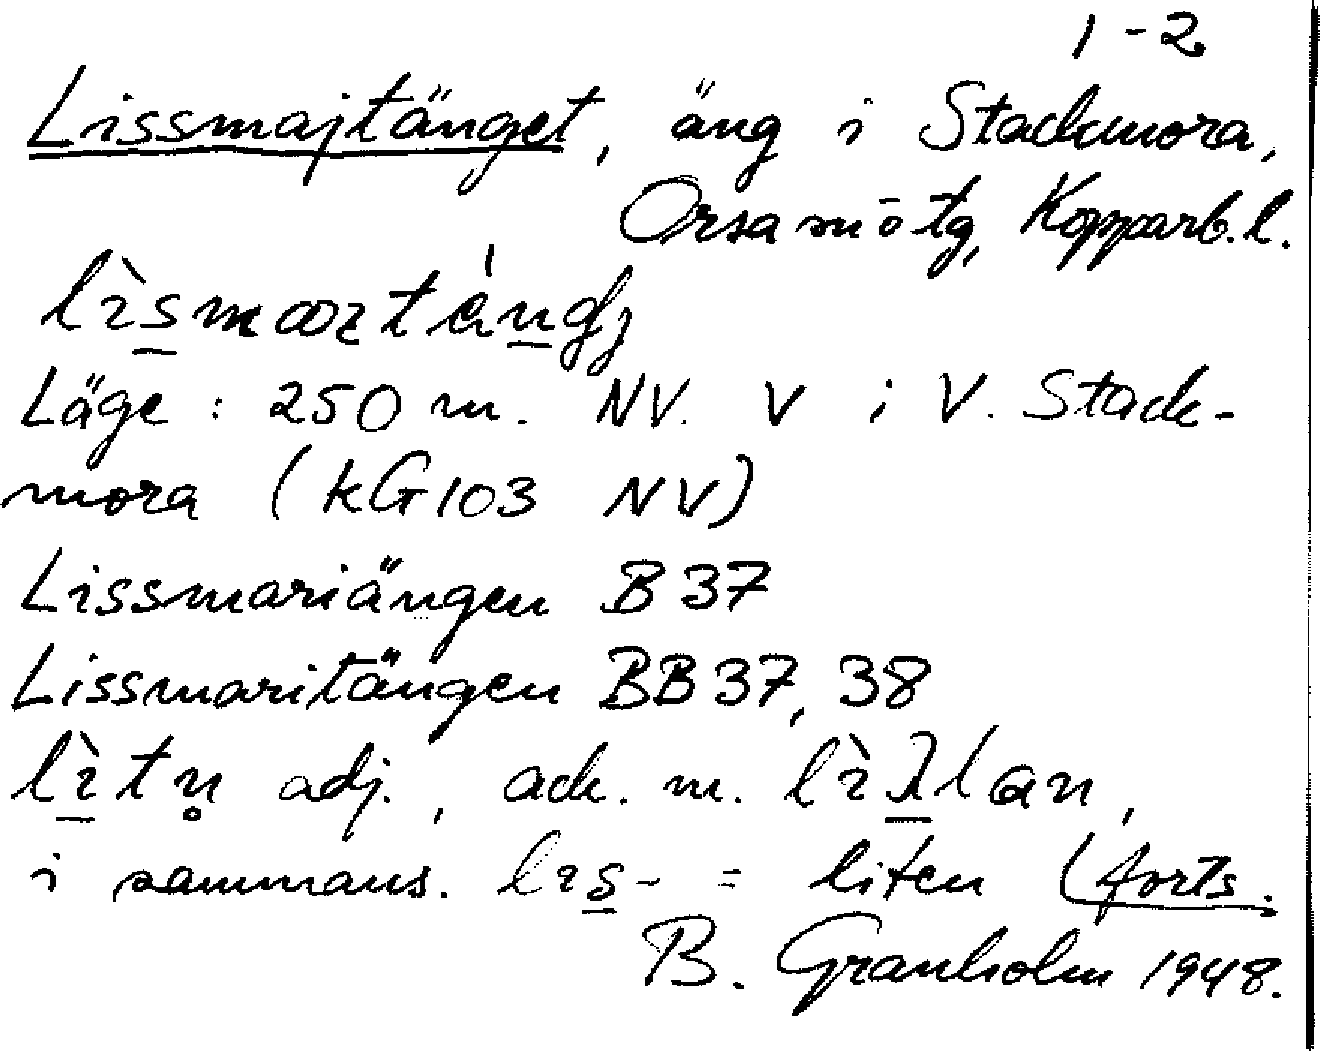 1-2
Lissmajtänget, äng i Stackmora,
Orsa sn o tg, Kopparb. l.
Läge: 250 m. NV. V i V. Stack-
mora (kG103 NV)
Lissmariängen B 37
Lissmaritängen BB 37, 38
adj., ack. m.
i sammans. = liten (forts.
B. Granholm 1948.